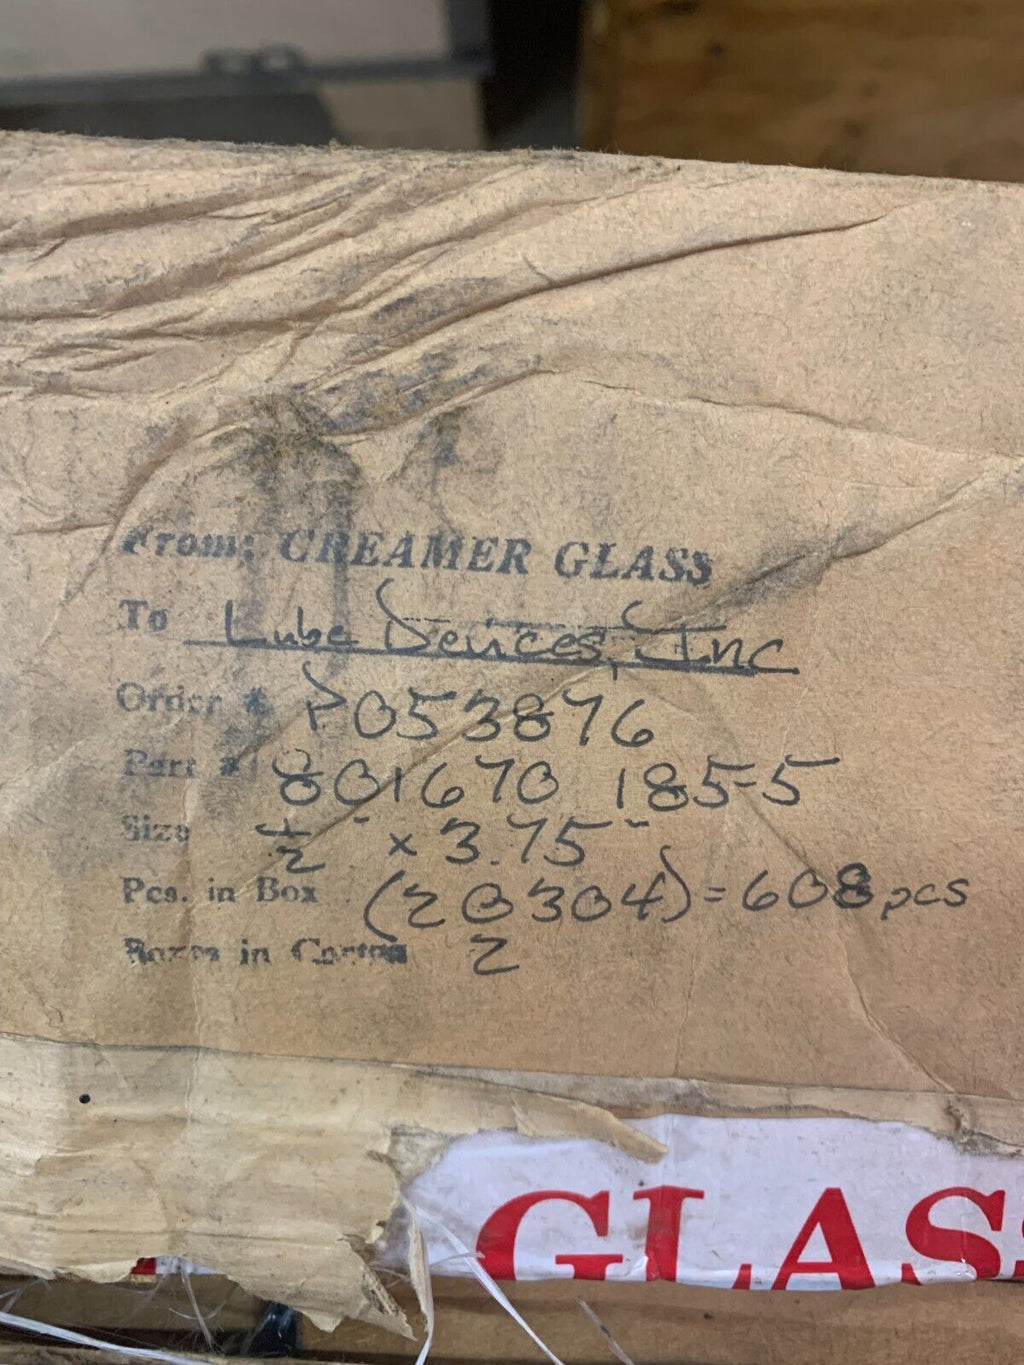 From: CREAMER GLASS
To Lube Devices, Inc
Order # P053876
Part # 801670 185-5
Size 1/2" x 3.75"
Pcs. in Box (2 @ 304) = 608 pcs
Boxes in Carton 2
GLASS